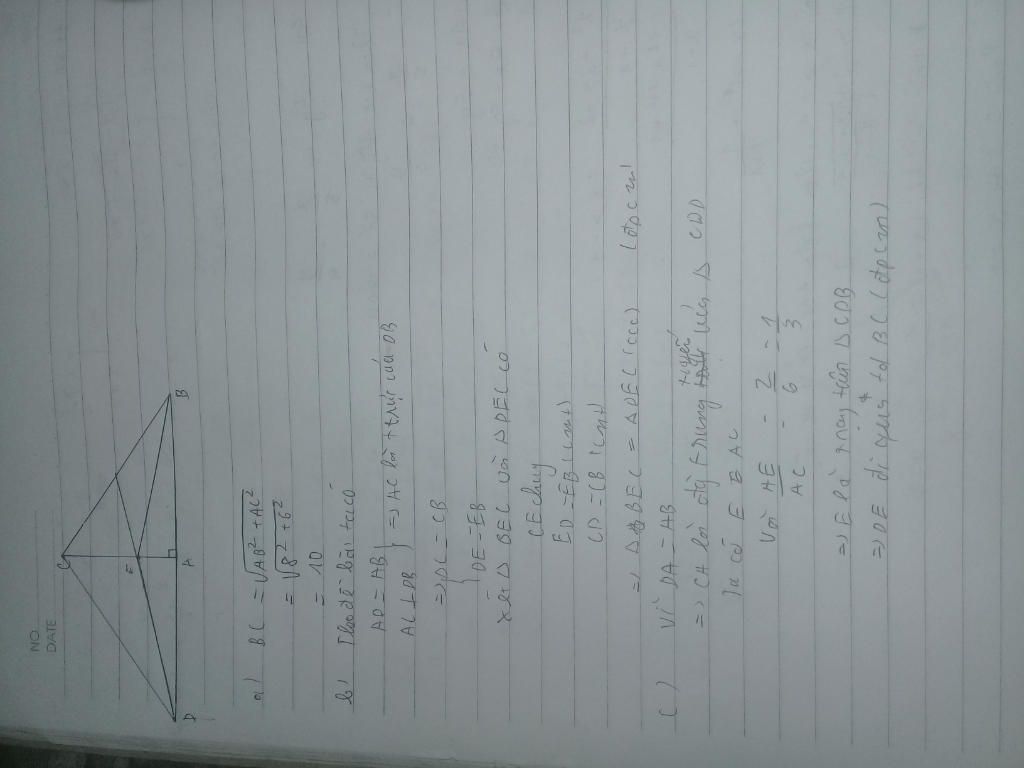 NO
DATE
C
E
D
A
B
a) BC = √AB² + AC²
= √8² + 6²
= 10
b) Theo đề bài ta có
AD = AB
AC ⊥ DB } => AC là t trực của DB
=> { DC = CB
DE = EB
Xét Δ BEC và Δ DEC có
CE chung
ED = EB (cmt)
CD = CB (cmt)
=> Δ BEC = Δ DEC (ccc) (đpcm)
c) Vì DA = AB
=> CA là đg trung tuyến của Δ CDB
Ta có E ∈ AC
Và AE/AC = 2/6 = 1/3
=> E là trọng tâm Δ CDB
=> DE đi qua tđ BC (đpcm)